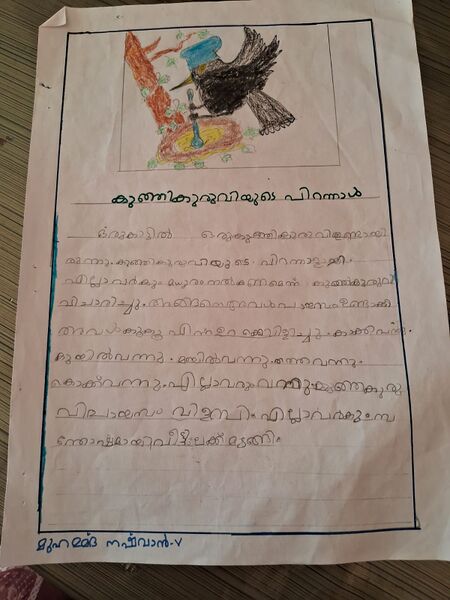 കുഞ്ഞികുരുവിയുടെ പിറന്നാൾ
ഒരുകാട്ടിൽ ഒരുകുഞ്ഞികുരുവിയുണ്ടായി
രുന്നു. കുഞ്ഞികുരുവിയുടെ പിറന്നാളായി.
എല്ലാവർക്കും മധുരം നൽകണമെന്ന് കുഞ്ഞികുരുവി
വിചാരിച്ചു. അങ്ങിനെഅവൾപായസംഉണ്ടാക്കി
അവൾകൂകൂ എന്ന് വിളിച്ചു. കാക്കവന്നു.
കുയിൽവന്നു. മയിൽവന്നു. തത്തവന്നു.
കൊക്ക്വന്നു. എല്ലാവരുംവന്നു. കുഞ്ഞികുരു
വിപായസം വിളമ്പി. എല്ലാവർകും സ
ന്തോഷമായിവീട്ടിലേക്ക് മടങ്ങി.
മുഹമ്മദ് നഷ്‌വാൻ-V